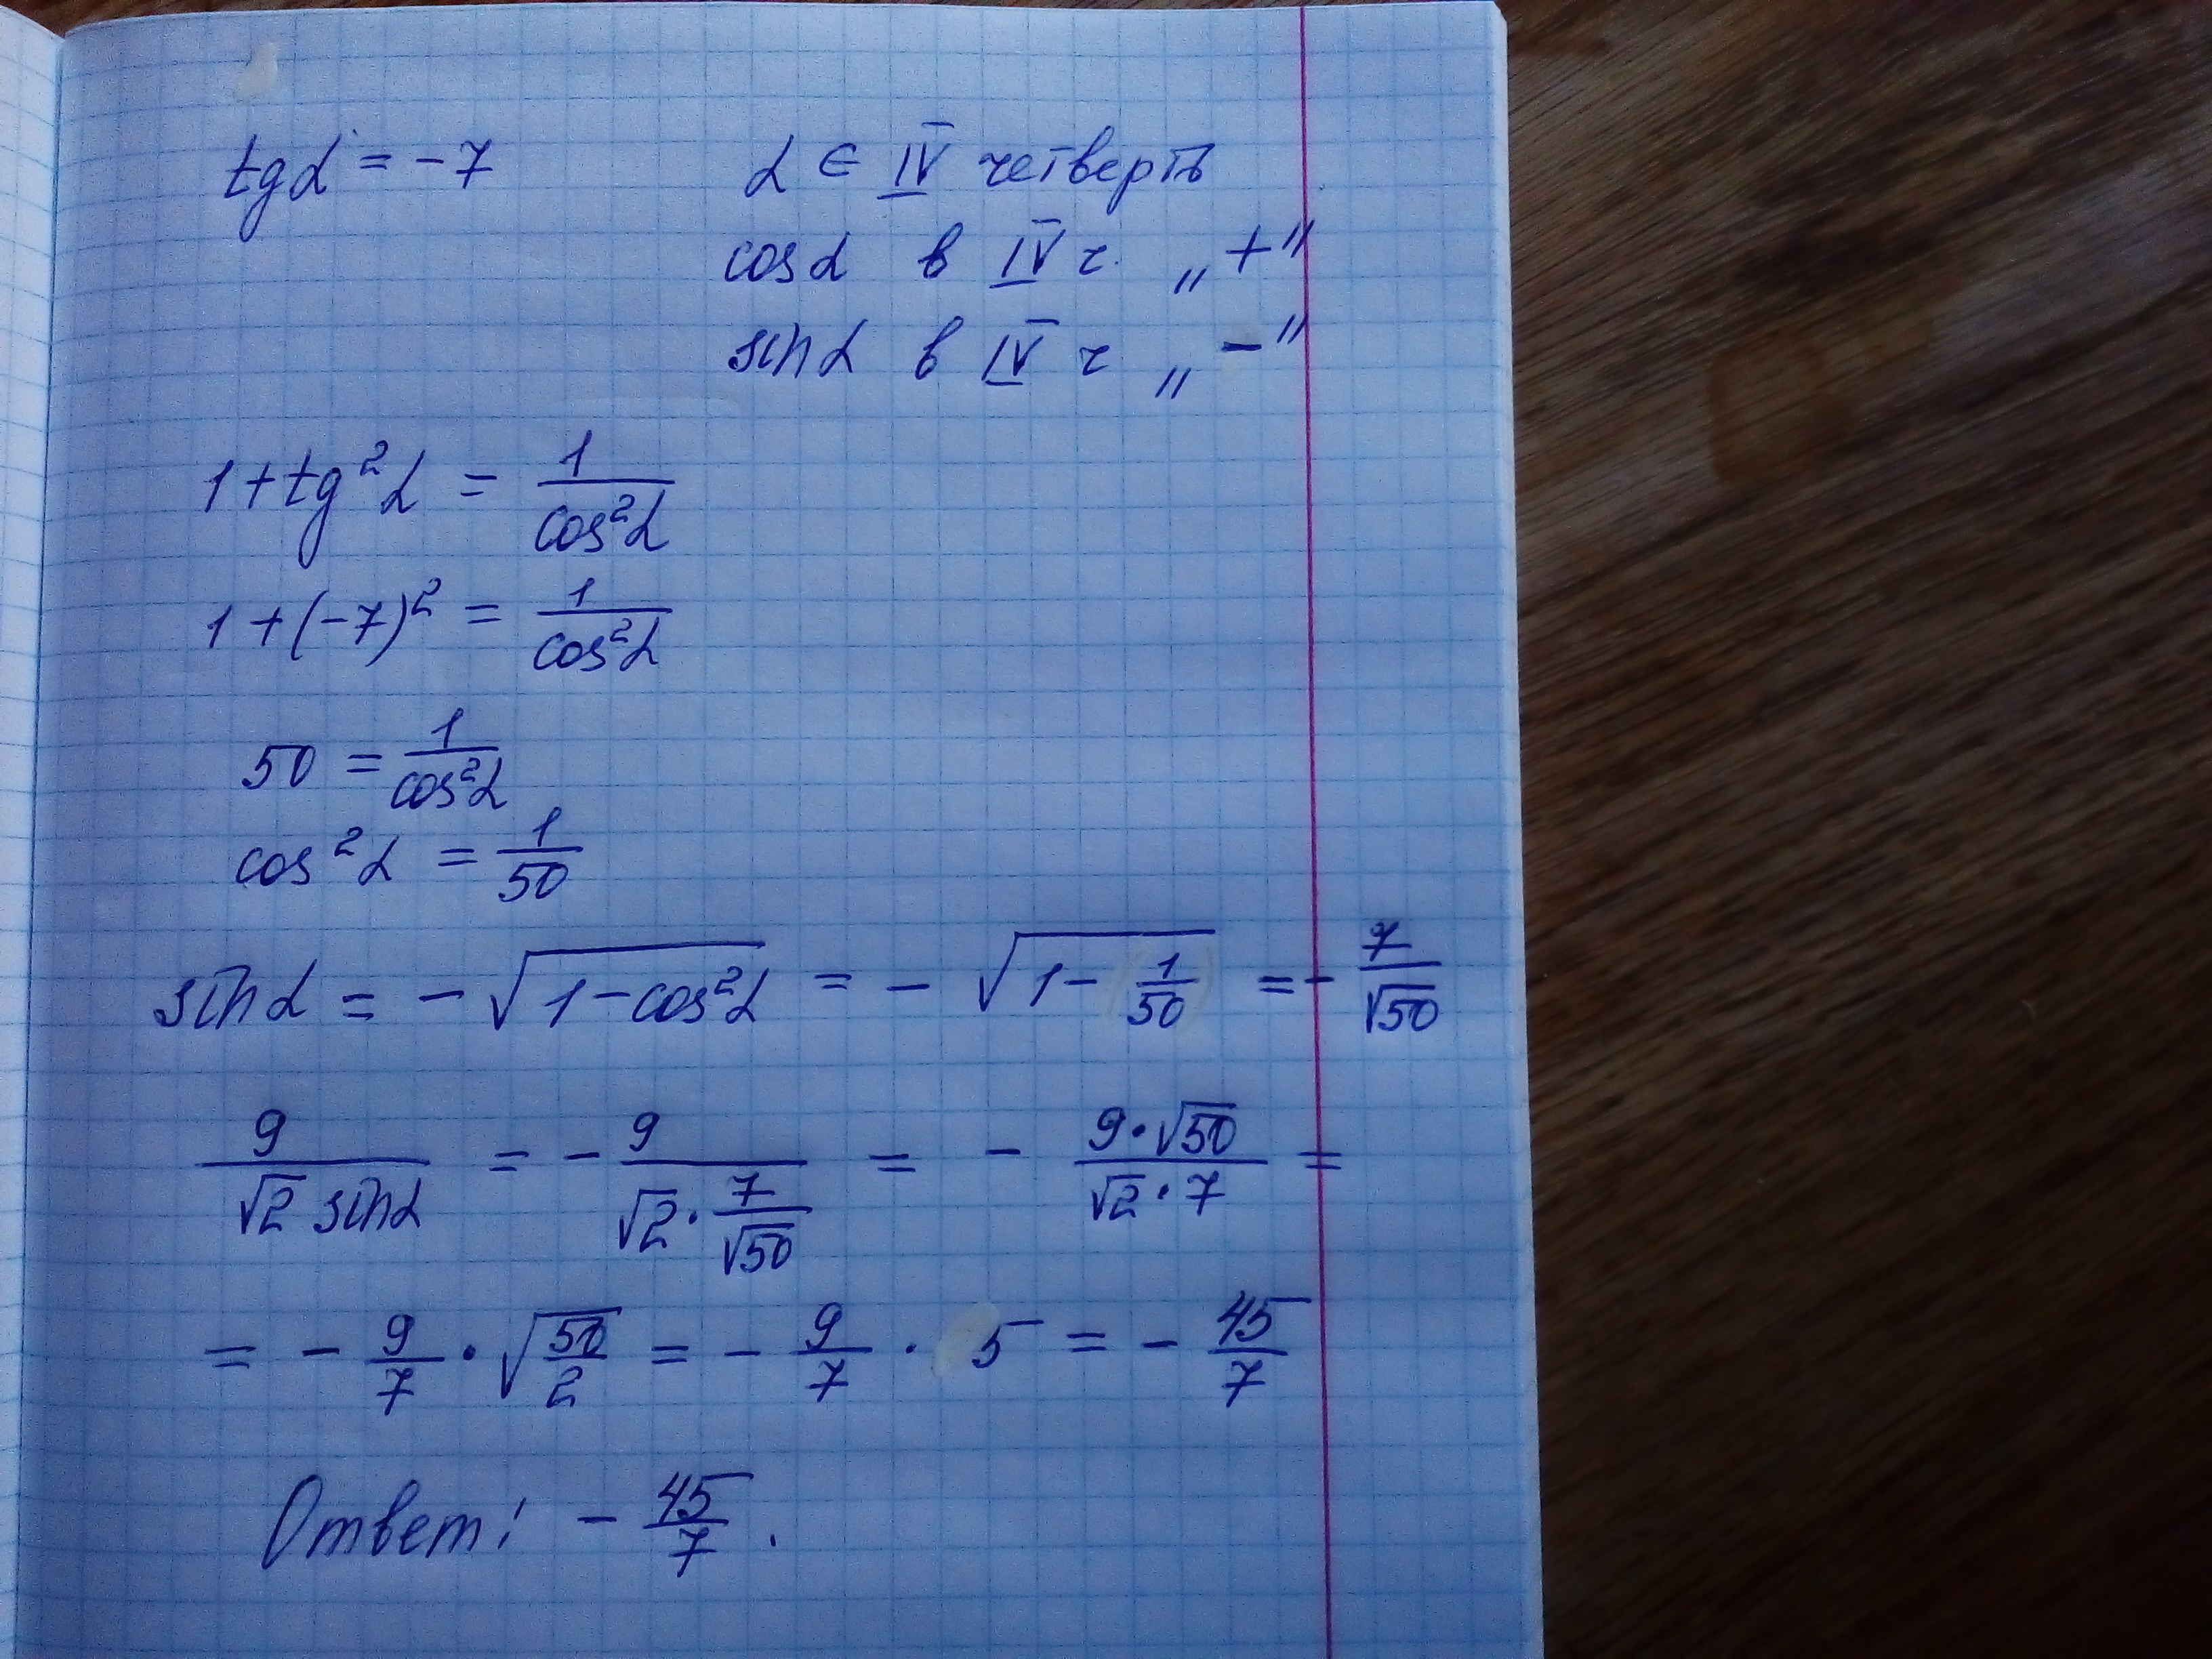 tgα = -7 α ∈ IV четверть
cosα в IV ч. „+“
sinα в IV ч „-“
1+tg²α = 1/cos²α
1+(-7)² = 1/cos²α
50 = 1/cos²α
cos²α = 1/50
sinα = -√(1-cos²α) = -√(1-1/50) = -7/√50
9/(√2 sinα) = -9/(√2·7/√50) = -(9·√50)/(√2·7) =
= -9/7·√(50/2) = -9/7·5 = -45/7
Ответ: -45/7.